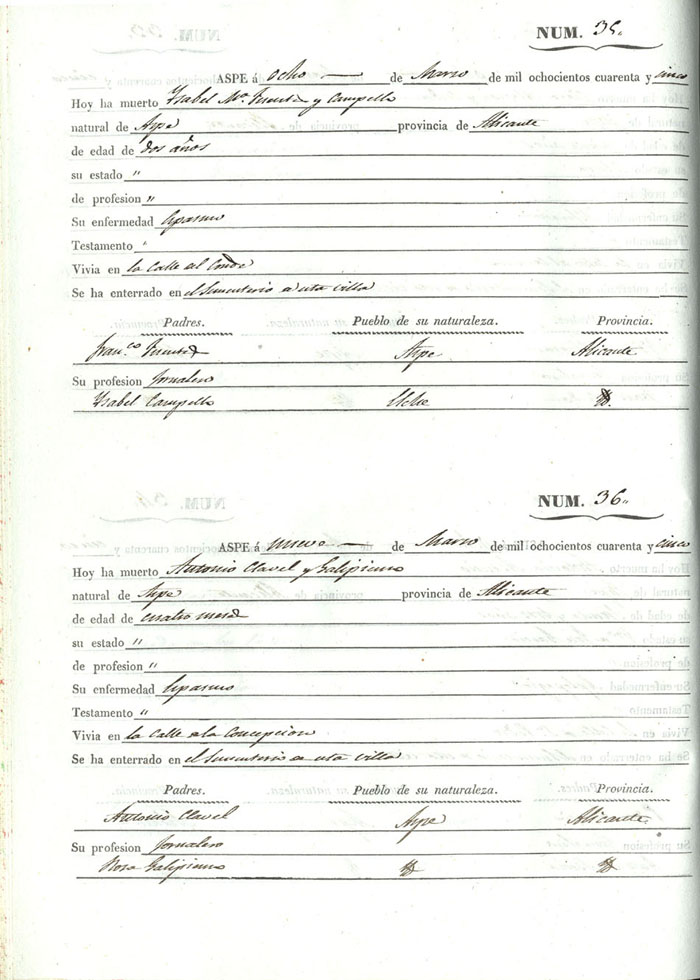 NUM. 35.
ASPE á ocho de Marzo de mil ochocientos cuarenta y cinco
Hoy ha muerto Ysabel Mª y Campello
natural de Aspe provincia de Alicante
de edad de dos años
su estado "
de profesion "
Su enfermedad Espasmo
Testamento "
Vivia en la Calle del Conde
Se ha enterrado en el Sementerio de esta villa
Padres. Pueblo de su naturaleza. Provincia.
Franco. Aspe Alicante
Su profesion Jornalero
Ysabel Campello Elche
NUM. 36..
ASPE á nueve de Marzo de mil ochocientos cuarenta y cinco
Hoy ha muerto Antonio Clavel y Galipienso
natural de Aspe provincia de Alicante
de edad de cuatro meses
su estado "
de profesion "
Su enfermedad Espasmo
Testamento "
Vivia en la Calle de la Concepcion
Se ha enterrado en el Sementerio de esta villa
Padres. Pueblo de su naturaleza. Provincia.
Antonio Clavel Aspe Alicante
Su profesion Jornalero
Rosa Galipienso